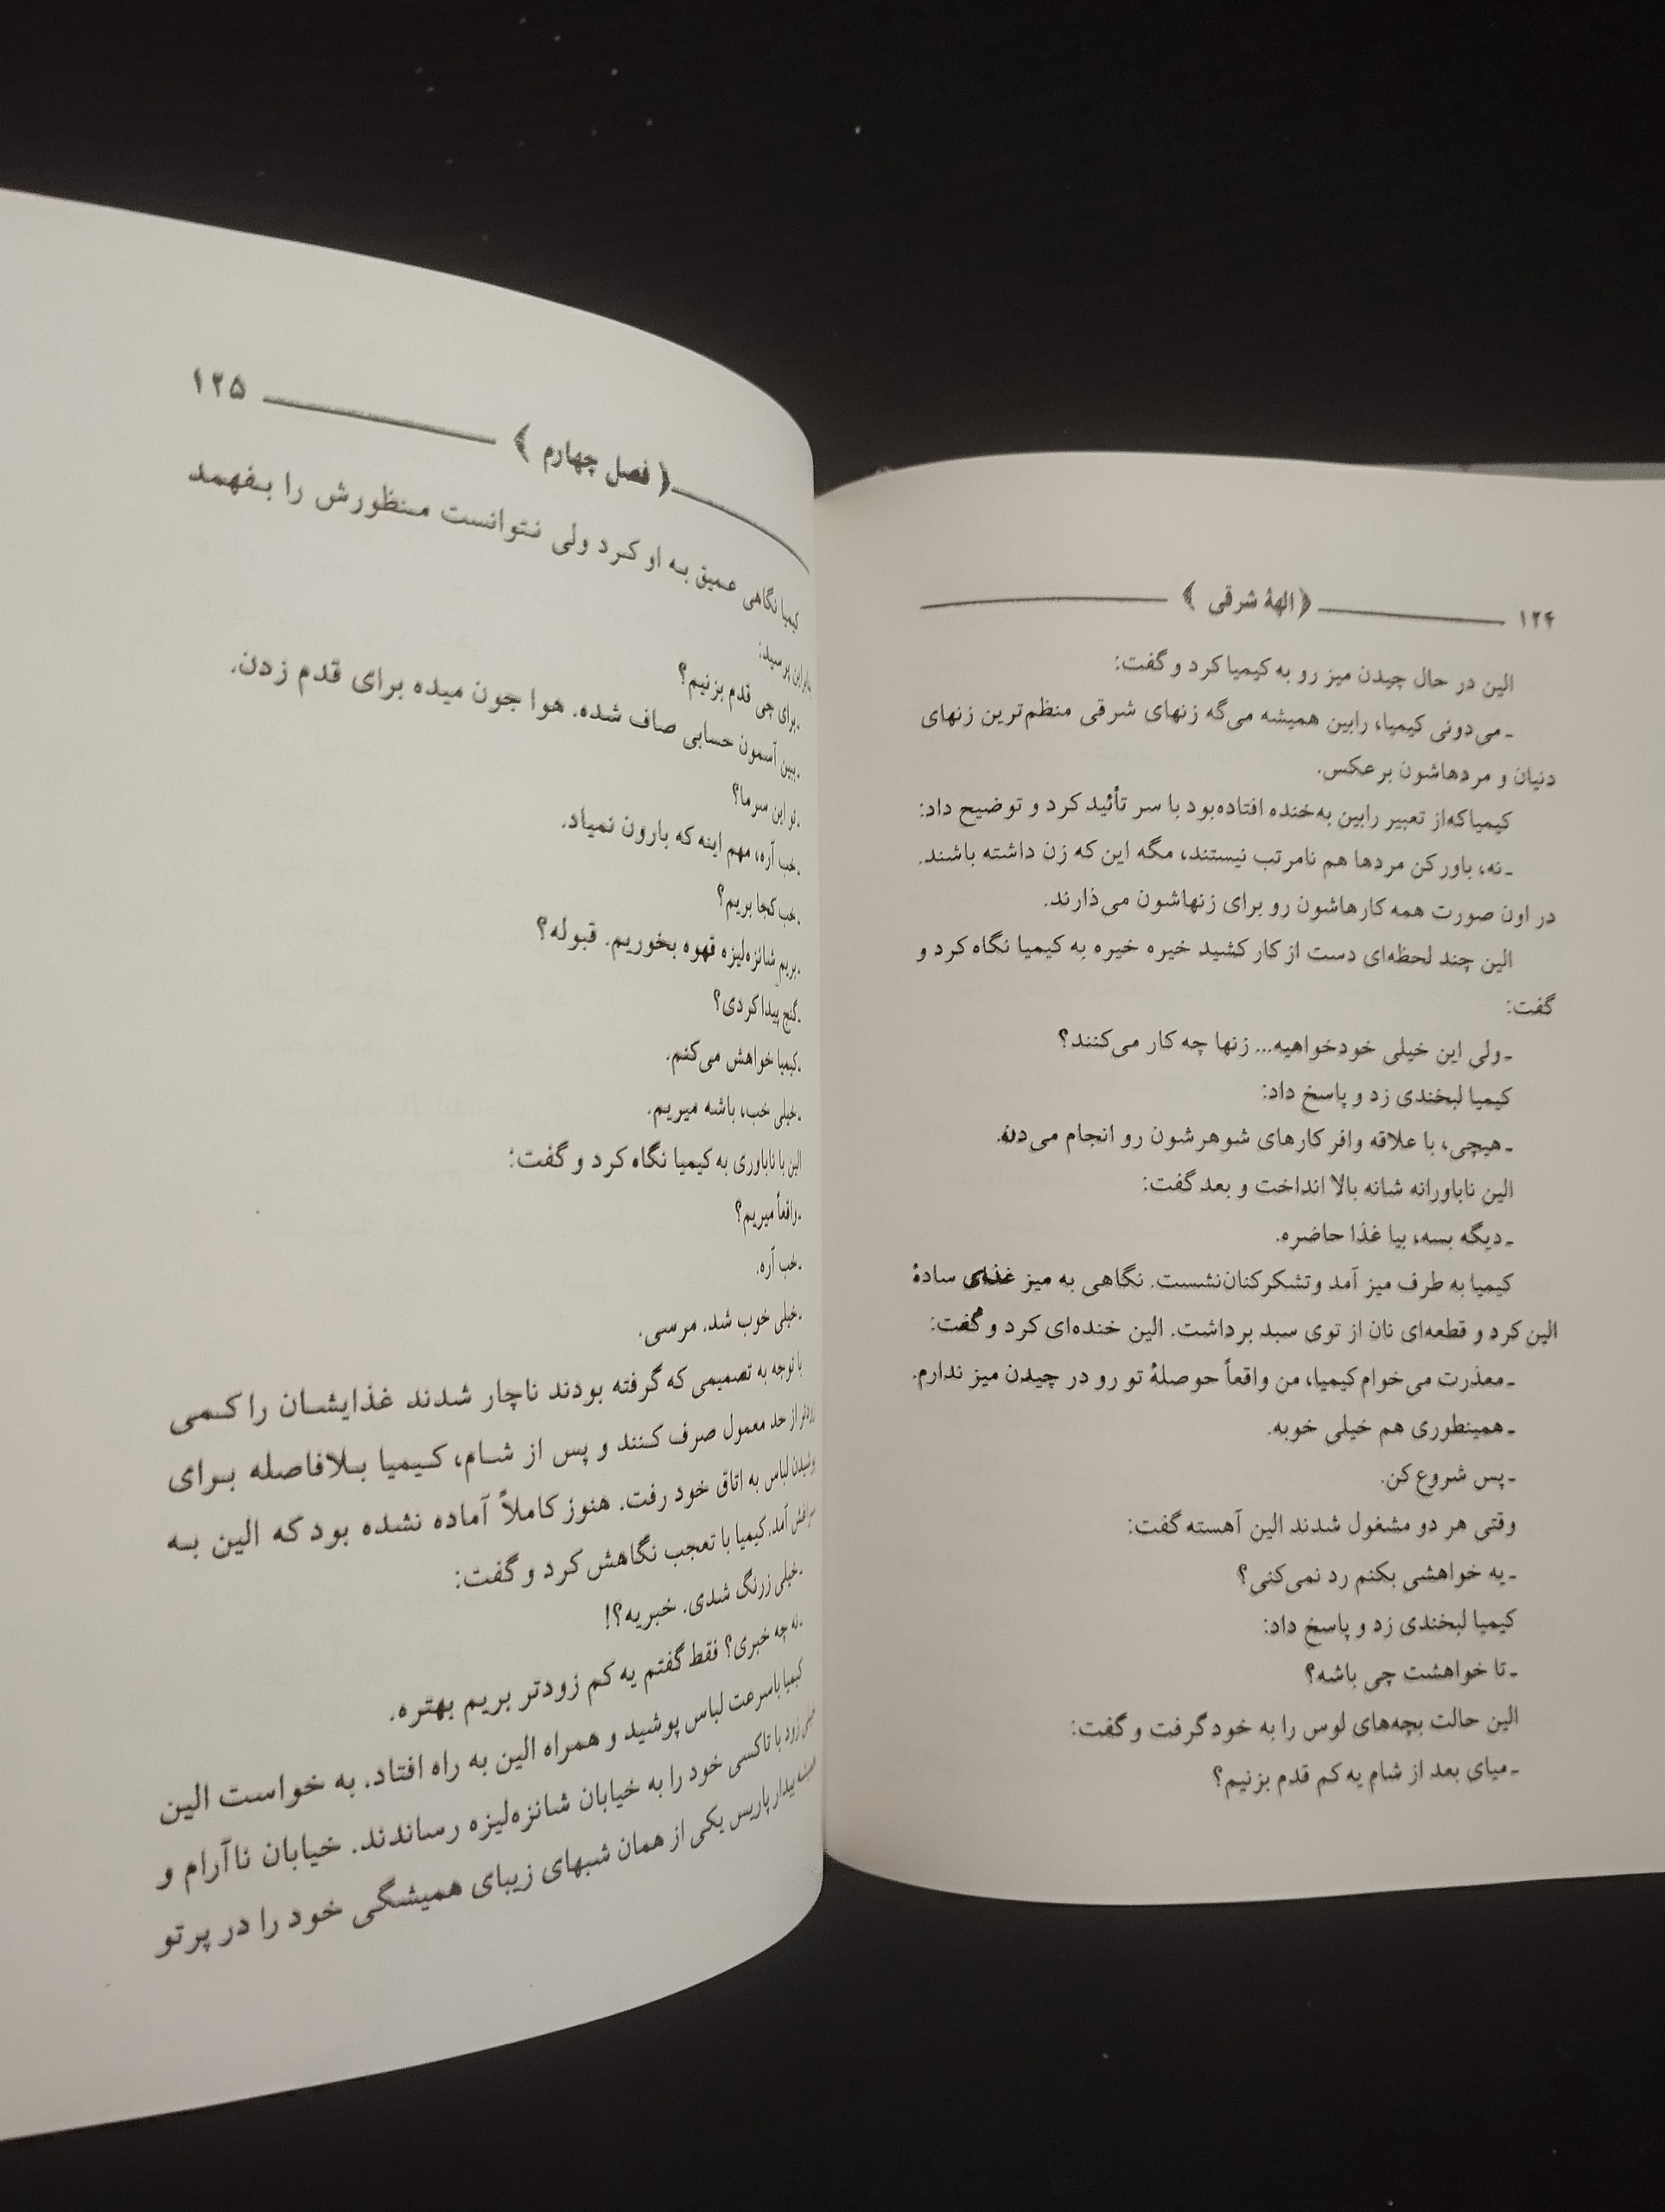 ۱۲۴ ﴿الههٔ شرقی﴾
الین در حال چیدن میز رو به کیمیا کرد و گفت:
ـ می‌دونی کیمیا، رابین همیشه می‌گه زنهای شرقی منظم‌ترین زنهای
دنیان و مردهاشون برعکس.
کیمیاکه‌از تعبیر رابین به‌خنده افتاده‌بود با سر تأئید کرد و توضیح داد:
ـ نه، باور کن مردها هم نامرتب نیستند، مگه این که زن داشته باشند.
در اون صورت همه کارهاشون رو برای زنهاشون می‌ذارند.
الین چند لحظه‌ای دست از کار کشید خیره خیره به کیمیا نگاه کرد و
گفت:
ـ ولی این خیلی خودخواهیه... زنها چه کار می‌کنند؟
کیمیا لبخندی زد و پاسخ داد:
ـ هیچی، با علاقه وافر کارهای شوهرشون رو انجام می‌دن.
الین ناباورانه شانه بالا انداخت و بعد گفت:
ـ دیگه بسه، بیا غذا حاضره.
کیمیا به طرف میز آمد وتشکرکنان‌نشست. نگاهی به میز غذای سادهٔ
الین کرد و قطعه‌ای نان از توی سبد برداشت. الین خنده‌ای کرد و گفت:
ـ معذرت می‌خوام کیمیا، من واقعاً حوصلهٔ تو رو در چیدن میز ندارم.
ـ همینطوری هم خیلی خوبه.
ـ پس شروع کن.
وقتی هر دو مشغول شدند الین آهسته گفت:
ـ یه خواهشی بکنم رد نمی‌کنی؟
کیمیا لبخندی زد و پاسخ داد:
ـ تا خواهشت چی باشه؟
الین حالت بچه‌های لوس را به خود گرفت و گفت:
ـ میای بعد از شام یه کم قدم بزنیم؟
﴿فصل چهارم﴾ ۱۲۵
کیمیا نگاهی عمیق به او کرد ولی نتوانست منظورش را بفهمد
بنابراین پرسید:
ـ برای چی قدم بزنیم؟
ـ ببین آسمون حسابی صاف شده. هوا جون میده برای قدم زدن.
ـ تو این سرما؟
ـ خب آره، مهم اینه که بارون نمیاد.
ـ خب کجا بریم؟
ـ بریم شانزه‌لیزه قهوه بخوریم. قبوله؟
ـ گنج پیدا کردی؟
ـ کیمیا خواهش می‌کنم.
ـ خیلی خب، باشه میریم.
الین با ناباوری به کیمیا نگاه کرد و گفت:
ـ واقعاً میریم؟
ـ خب آره.
ـ خیلی خوب شد. مرسی.
با توجه به تصمیمی که گرفته بودند ناچار شدند غذایشان را کمی
زودتر از حد معمول صرف کنند و پس از شام، کیمیا بلافاصله برای
پوشیدن لباس به اتاق خود رفت. هنوز کاملاً آماده نشده بود که الین به
سراغش آمد. کیمیا با تعجب نگاهش کرد و گفت:
ـ خیلی زرنگ شدی. خبریه؟!
ـ نه چه خبری؟ فقط گفتم یه کم زودتر بریم بهتره.
کیمیا باسرعت لباس پوشید و همراه الین به راه افتاد. به خواست الین
خیلی زود با تاکسی خود را به خیابان شانزه‌لیزه رساندند. خیابان ناآرام و
همیشه بیدار پاریس یکی از همان شبهای زیبای همیشگی خود را در پرتو